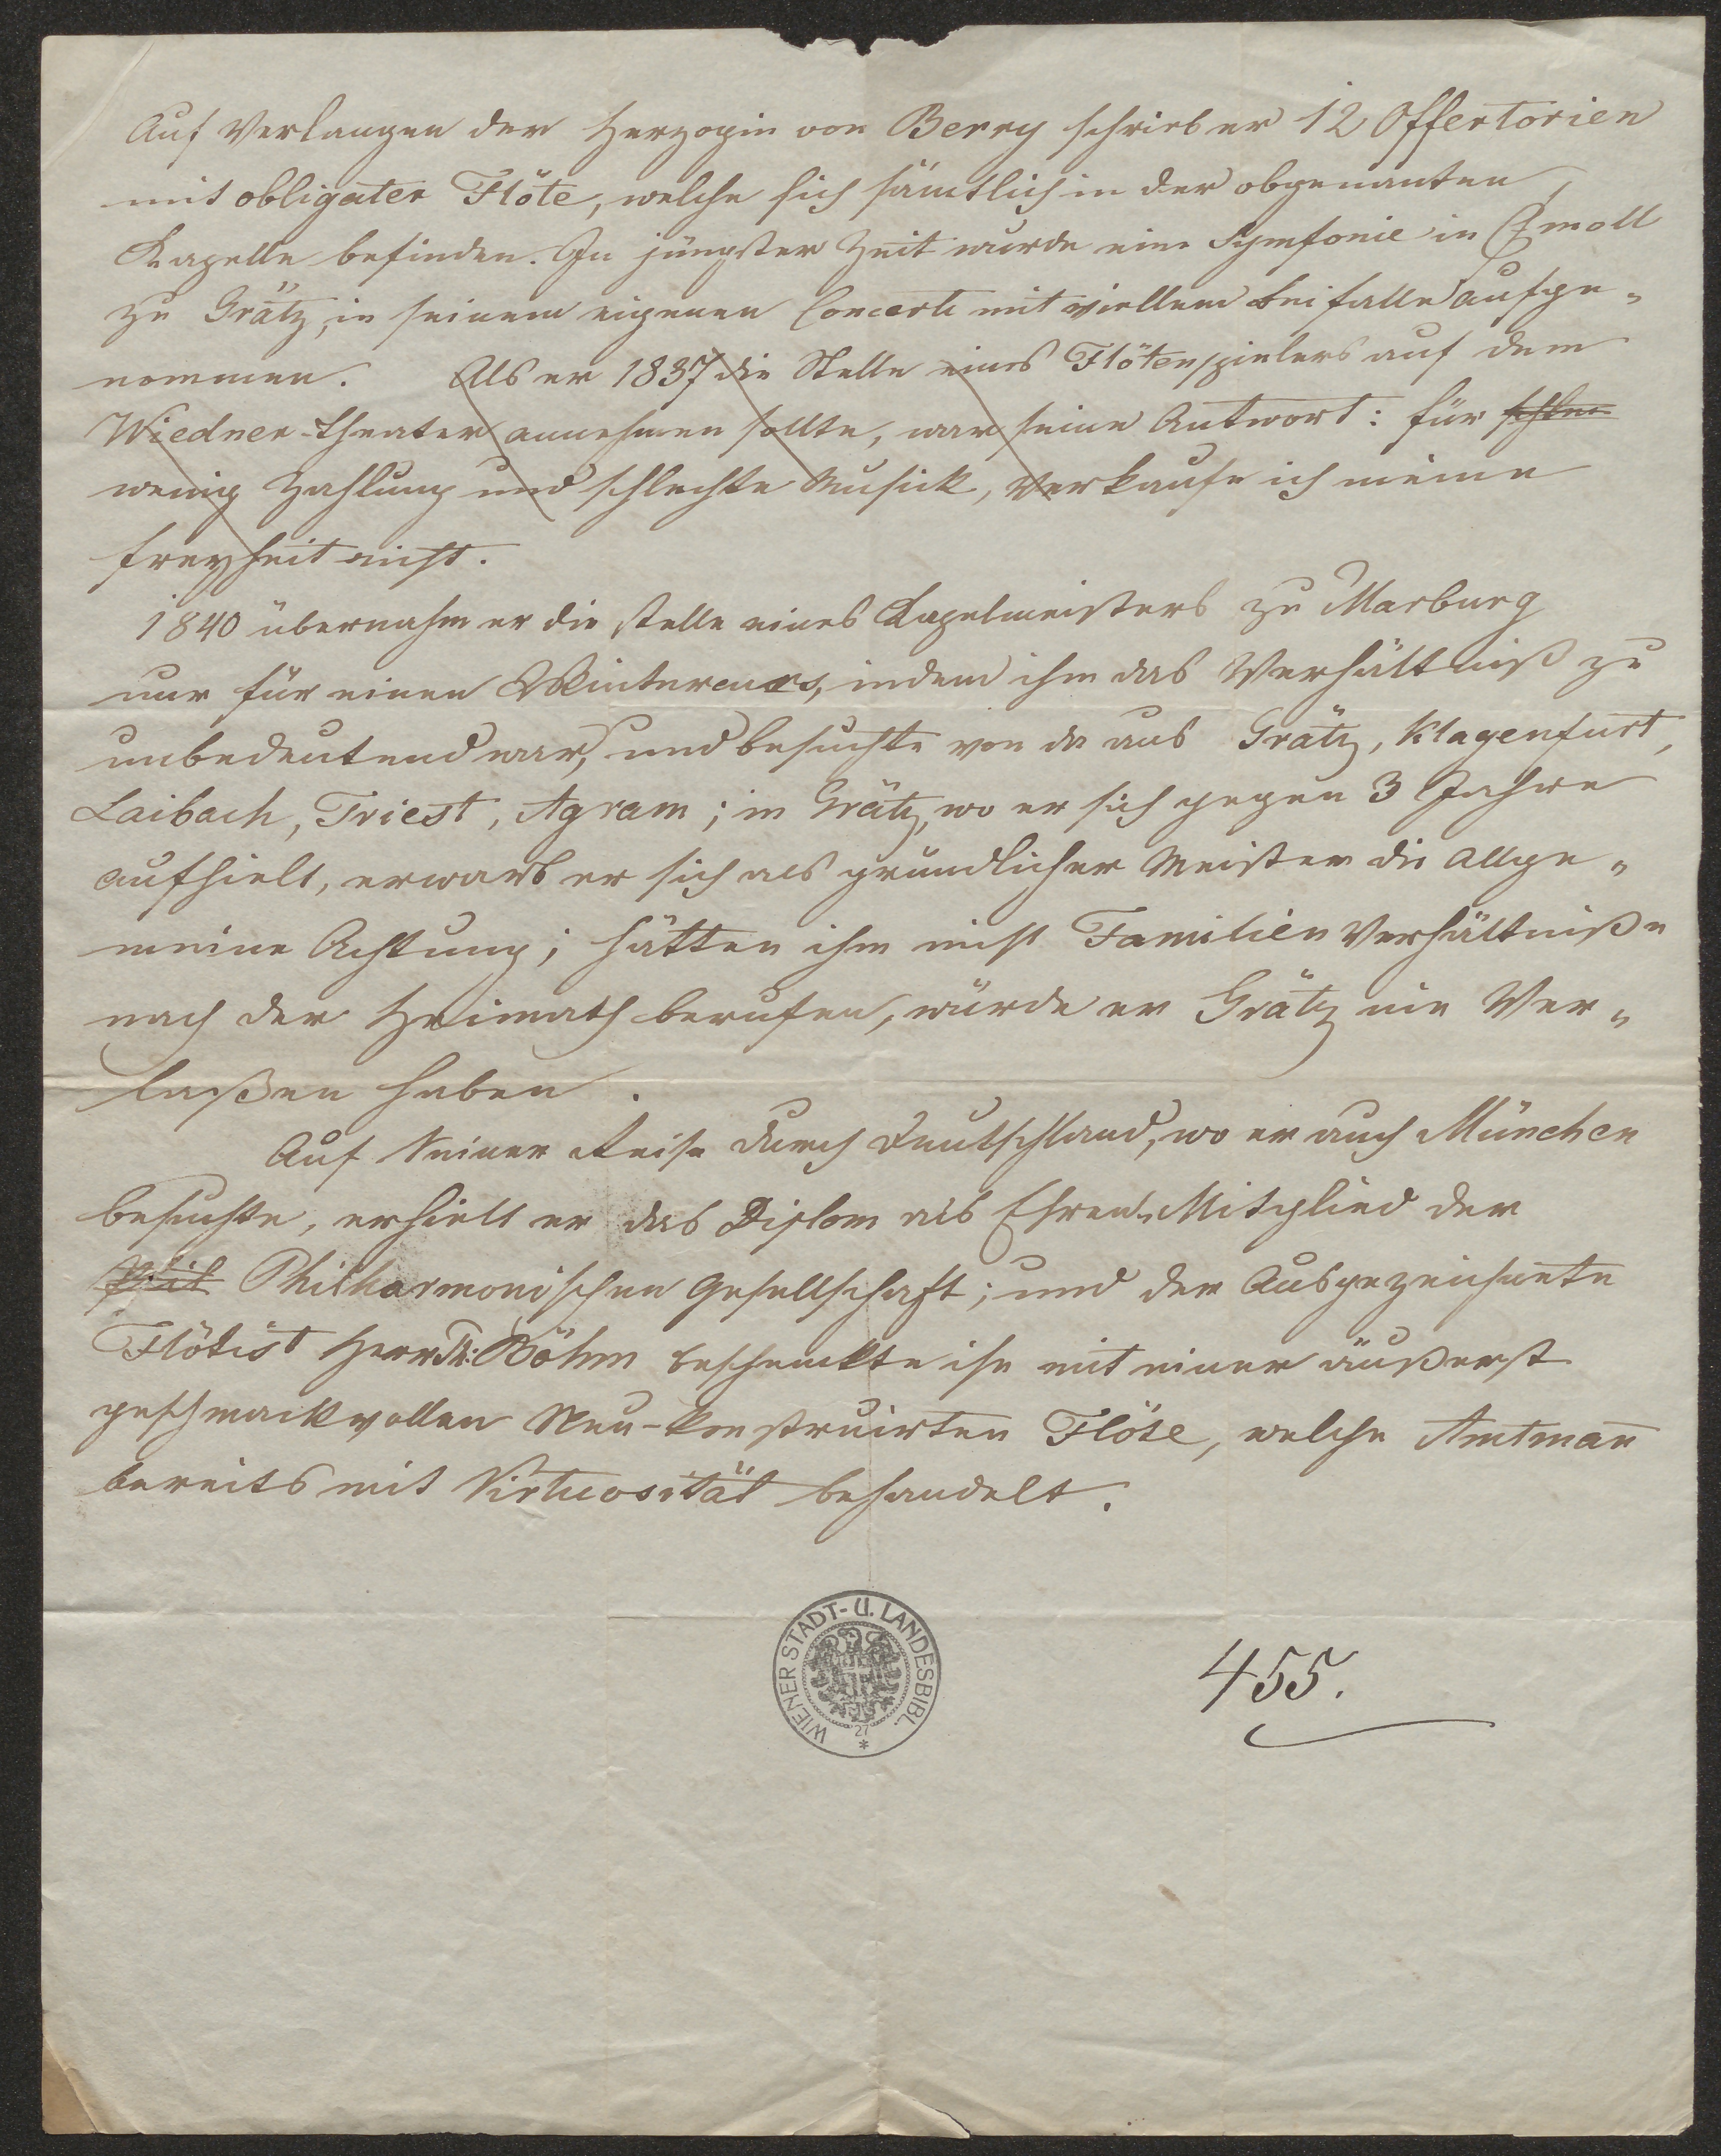 Auf Verlangen der Herzogin von Berry schrieb er 12 Offertorien
mit obligater Flöte, welche sich sämtlich in der obgenanten
Kapelle befinden. In jüngster Zeit wurde eine Symfonie in Cmoll
zu Grätz, in seinem eigenen Concerte mit viellem Beifalle aufge„
nommen. Als er 1837 die Stelle eines Flötenspielers auf dem
Wiedner-Theater annehmen sollte, war seine Antwort: für schlec
wenig Zahlung und schlechte Musick, Verkaufe ich meine
Freyheit nicht.
1840 übernahm er die Stelle eines Kapelmeisters zu Marburg
nur für einen Wintercurs, indem ihm das Verhältniß zu
unbedeutend war, und besuchte von da aus Grätz, Klagenfurt,
Laibach, Triest, Agram; in Grätz, wo er sich gegen 3 Jahre
aufhielt, erwarb er sich als gründlicher Meister die Allge„
meine Achtung; hätten ihm nicht Familien Verhältniße
nach der Heimath berufen, würde er Grätz nie Ver„
laßen haben.
Auf Seiner Reise durch Deutschland, wo er auch München
besuchte, erhielt er das Diplom als Ehren„Mitglied der
Phil Philharmonischen Gesellschaft; und der Ausgezeichnete
Flötist Herr Th: Böhm beschenckte ihn mit einer äußerst
geschmackvollen Neu-konstruirten Flöte, welche Amtmañ
bereits mit Virtuosität behandelt.
WIENER STADT- U. LANDESBIBL.
27
455.